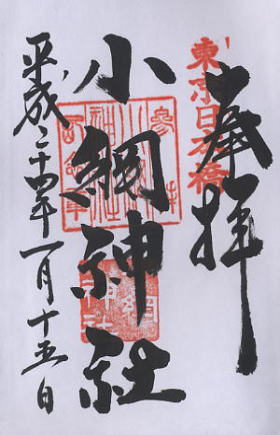 東京日本橋
奉拝
小網神社
平成二十四年一月十五日